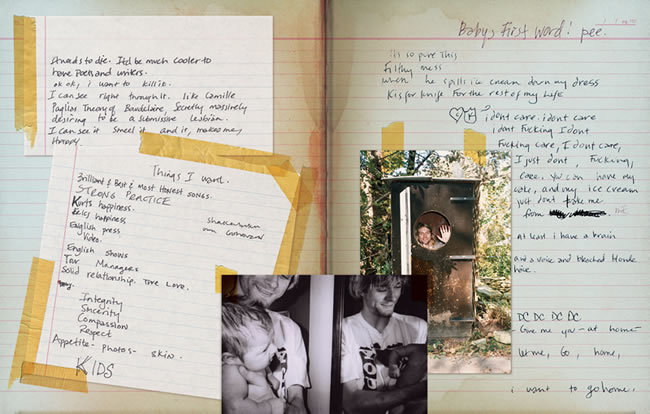 needs to die. It'd be much cooler to
have Poets and writers.
ok ok, i want to kill it.
I can see right through it. like Camille
Paglias Theory of Baudelaire, Secretly massively
desiring to be a submissive lesbian.
I can see it smell it and it, makes me
Things I want.
Brilliant & Best & most Honest songs.
STRONG PRACTICE
Kurts happiness.
happiness
English press
Video.
English shows
Tour Managers
Solid relationship. True Love.
Integrity
Sincerity
Compassion
Respect
Appetite - photos - skin.
KIDS
Babys First word! pee.
its so pure this
Filthy mess
when he spills ice cream down my dress
K is for knife For the rest of my life
i dont care. i dont care
i dont Fucking I dont
Fucking care, I dont care,
I just dont, Fucking,
Care. you can have my
cake, and my ice cream
just dont me
from
at least i have a brain
and a voice and bleached blonde
hair.
DC DC DC DC
- Give me you - at home -
let me, Go, home,
i want to go home.